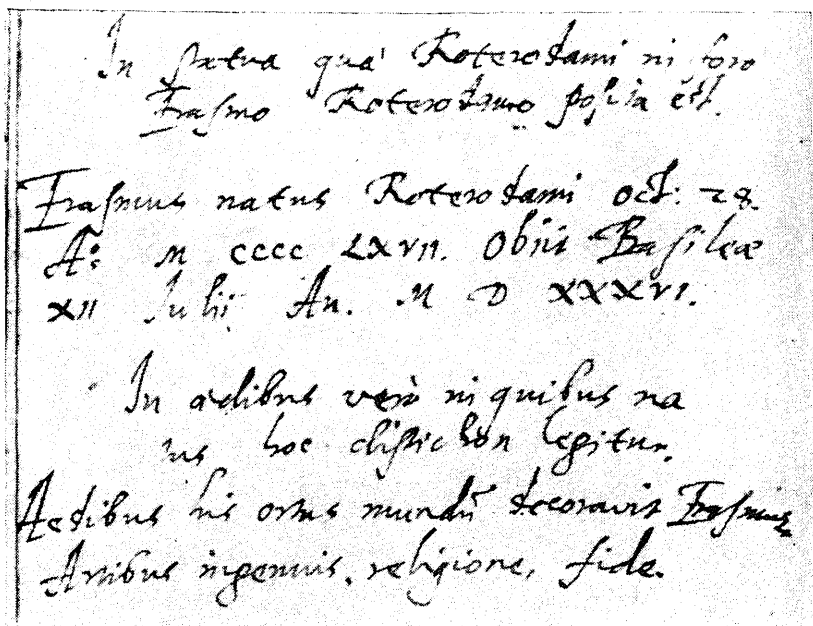 In statua quâ Roterodami in foro
Erasmo Roterodamo posita est.
Erasmus natus Roterodami oct: 28.
A:̊ M CCCC LXVII. Obiit Basileæ
XII Julii An. M D XXXVI.
In ædibus verò in quibus na
tus hoc distichon legitur.
Aedibus his ortus mundū decoravit Erasmus
Artibus ingenuis, religione, fide.